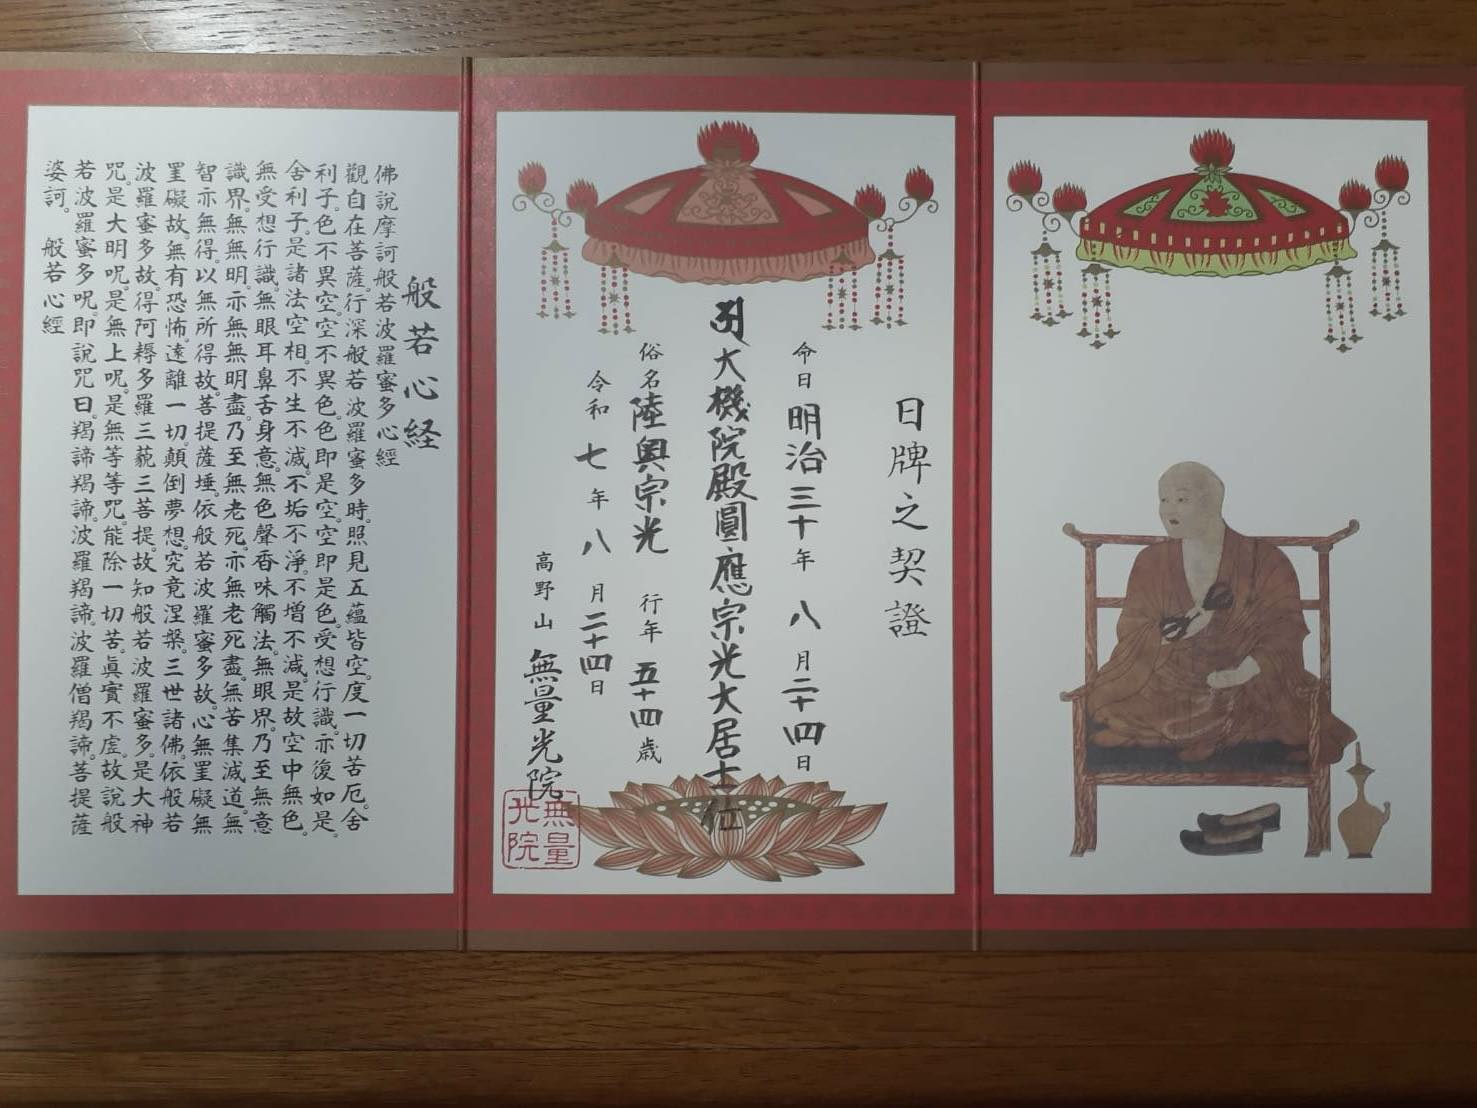 日牌之契證
命日 明治三十年 八月二十四日
大機院殿圓應宗光大居士位
俗名 陸奥宗光 行年 五十四歳
令和 七年 八月二十四日
高野山 無量光院
無量
光院
般若心経
佛說摩訶般若波羅蜜多心經
觀自在菩薩。行深般若波羅蜜多時。照見五蘊皆空。度一切苦厄。舍
利子。色不異空。空不異色。色即是空。空即是色。受想行識。亦復如是。
舍利子。是諸法空相。不生不滅。不垢不淨。不增不減。是故空中無色。
無受想行識。無眼耳鼻舌身意。無色聲香味觸法。無眼界。乃至無意
識界。無無明。亦無無明盡。乃至無老死。亦無老死盡。無苦集滅道。無
智亦無得。以無所得故。菩提薩埵。依般若波羅蜜多故。心無罣礙無
罣礙故。無有恐怖。遠離一切。顛倒夢想。究竟涅槃。三世諸佛。依般若
波羅蜜多故。得阿耨多羅三藐三菩提。故知般若波羅蜜多。是大神
咒。是大明呪。是無上呪。是無等等咒。能除一切苦。眞實不虛。故說般
若波羅蜜多呪。即說咒曰。羯諦羯諦。波羅羯諦。波羅僧羯諦。菩提薩
婆訶。 般若心經